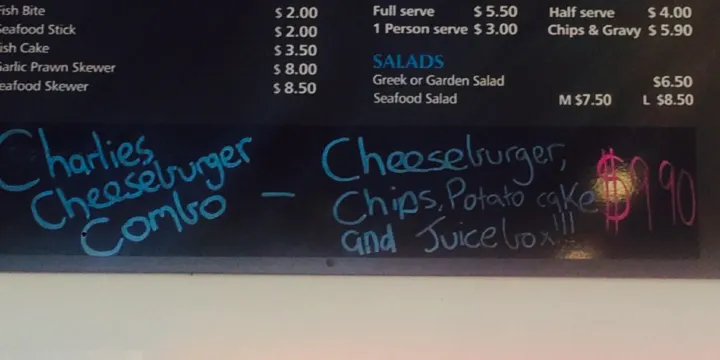 Fish Bite $2.00
Seafood Stick $2.00
Fish Cake $3.50
Garlic Prawn Skewer $8.00
Seafood Skewer $8.50
Full serve $5.50 Half serve $4.00
1 Person serve $3.00 Chips & Gravy $5.90
SALADS
Greek or Garden Salad $6.50
Seafood Salad M $7.50 L $8.50
Charlies
Cheeseburger
Combo –
Cheeseburger,
Chips, Potato cake
and Juicebox!!!
$9.90